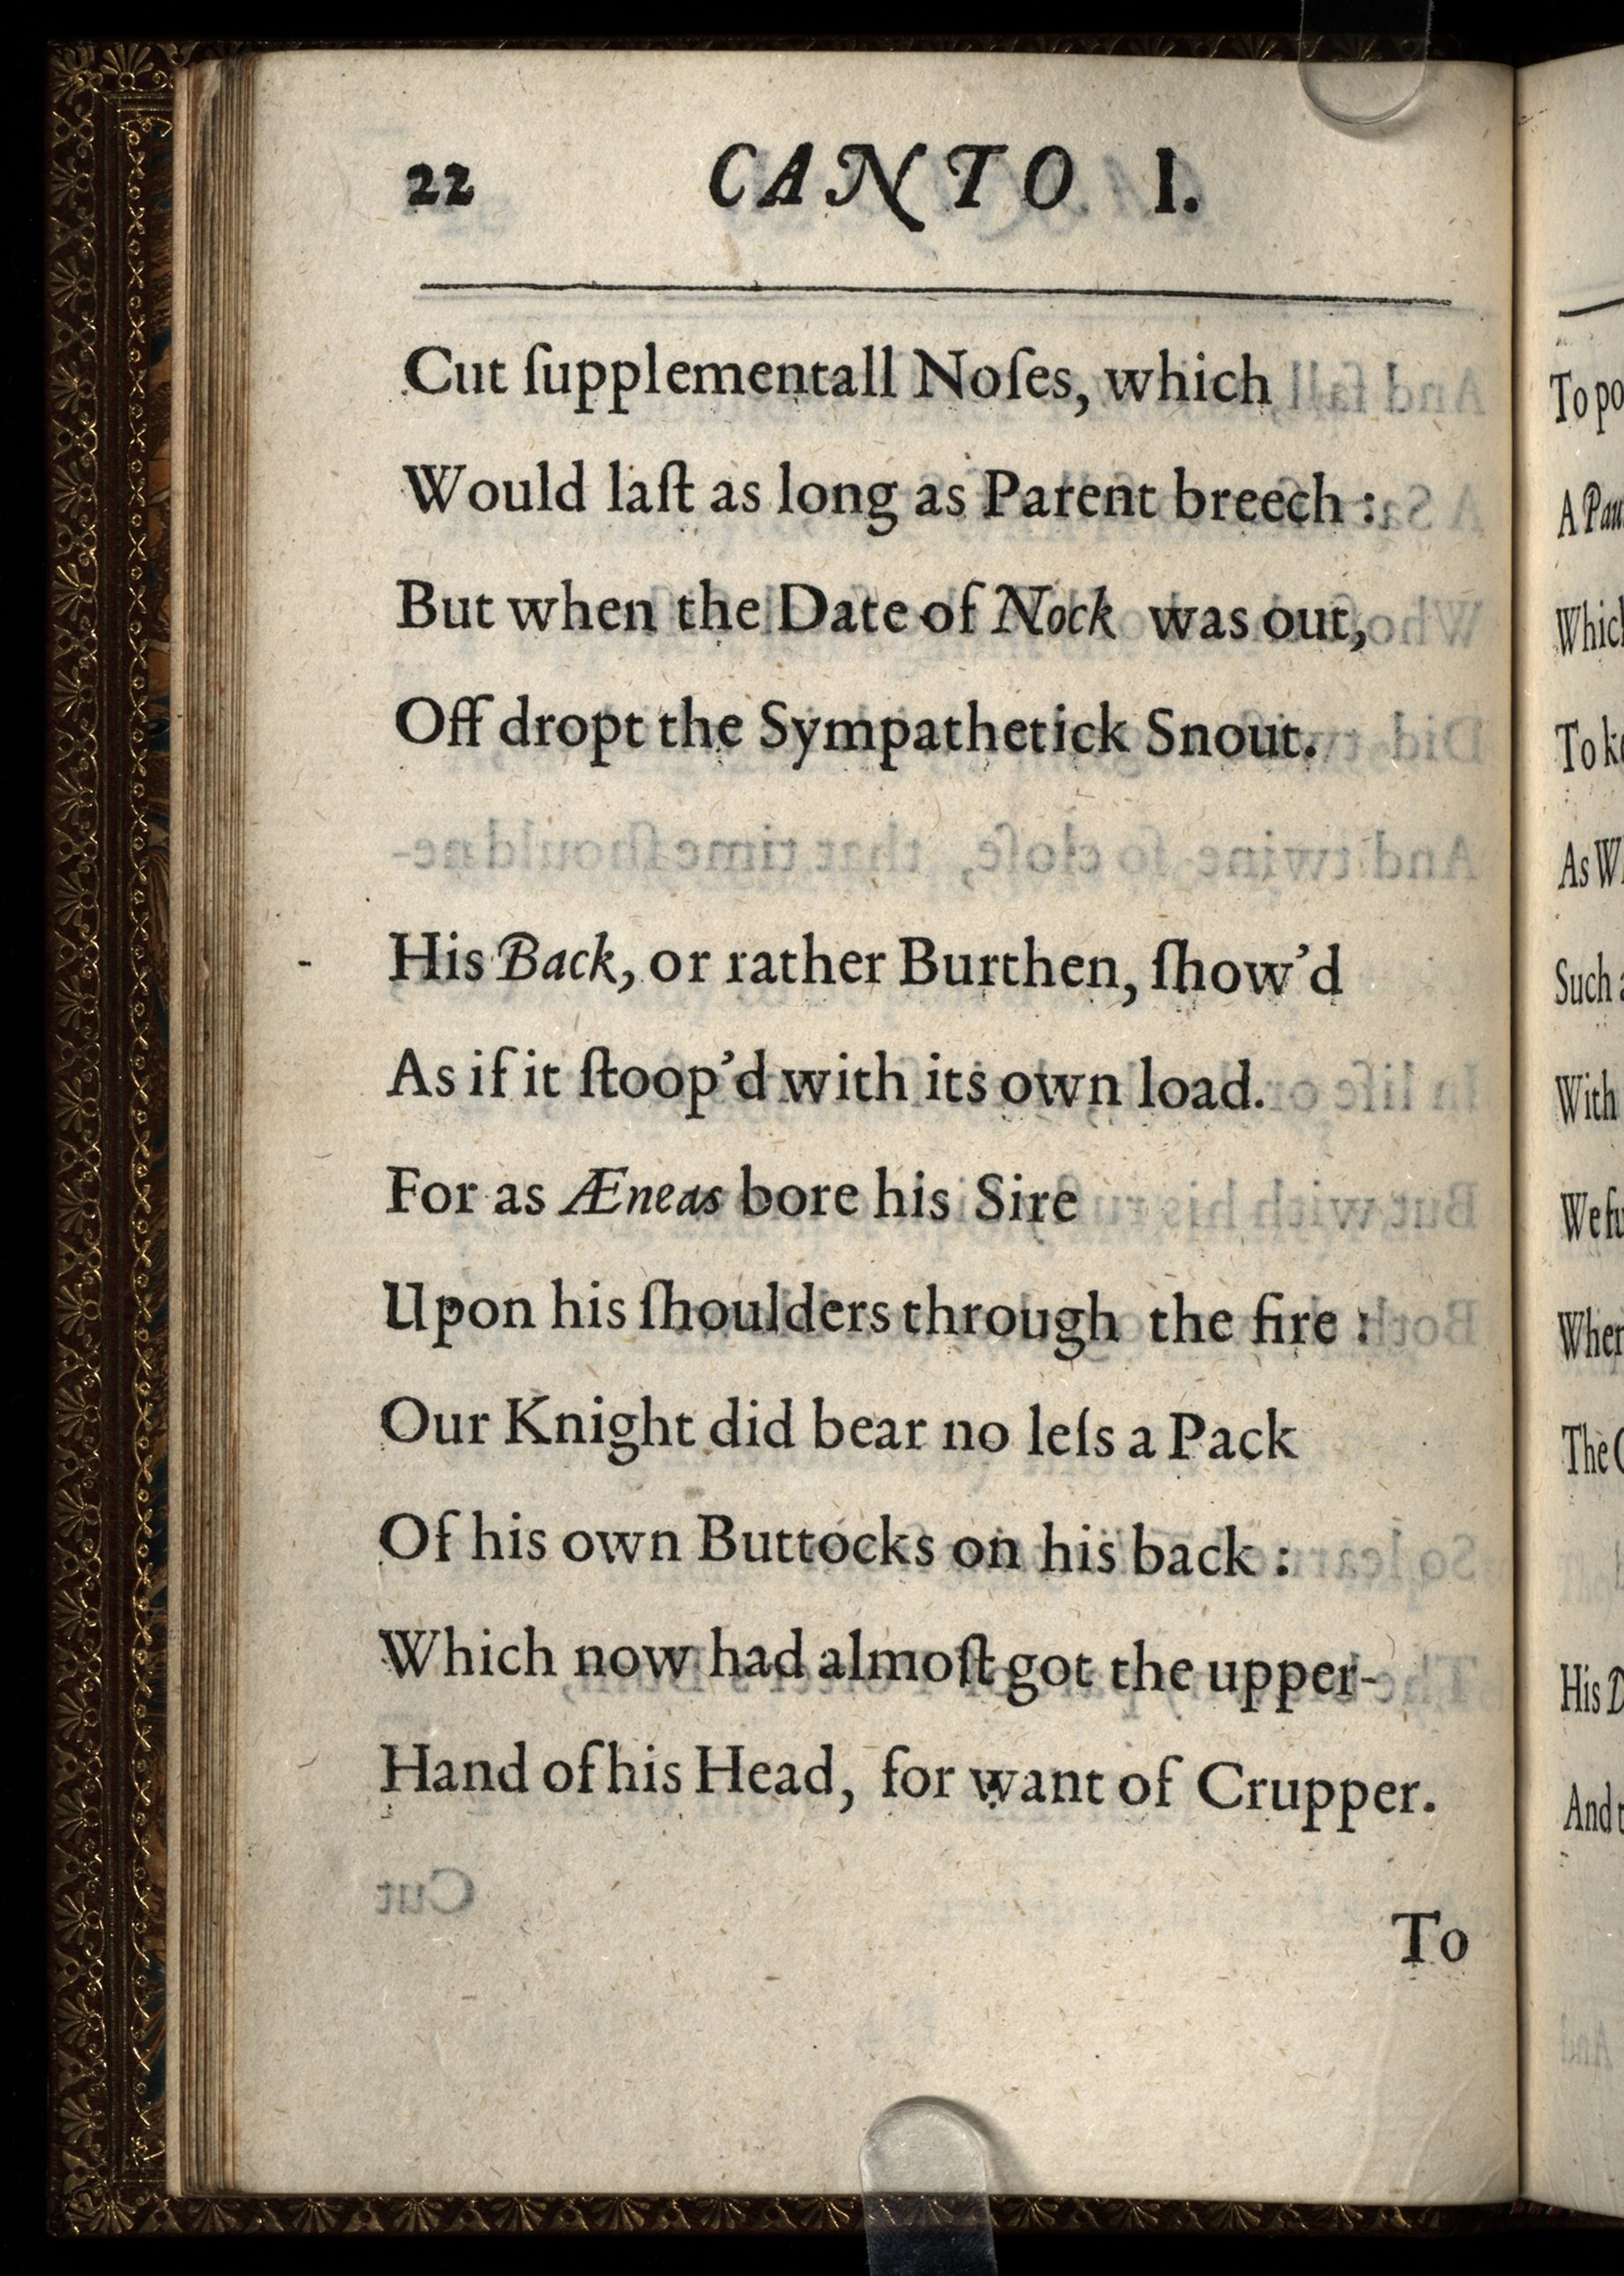 22 CANTO I.
Cut ſupplementall Noſes, which
Would laſt as long as Parent breech :
But when the Date of Nock was out,
Off dropt the Sympathetick Snout.
His Back, or rather Burthen, ſhow'd
As if it ſtoop'd with its own load.
For as Æneas bore his Sire
Upon his ſhoulders through the fire :
Our Knight did bear no leſs a Pack
Of his own Buttocks on his back :
Which now had almoſt got the upper-
Hand of his Head, for want of Crupper.
To
To po
A Pau
Which
To k
As W
Such a
With
We fu
When
The
His D
And